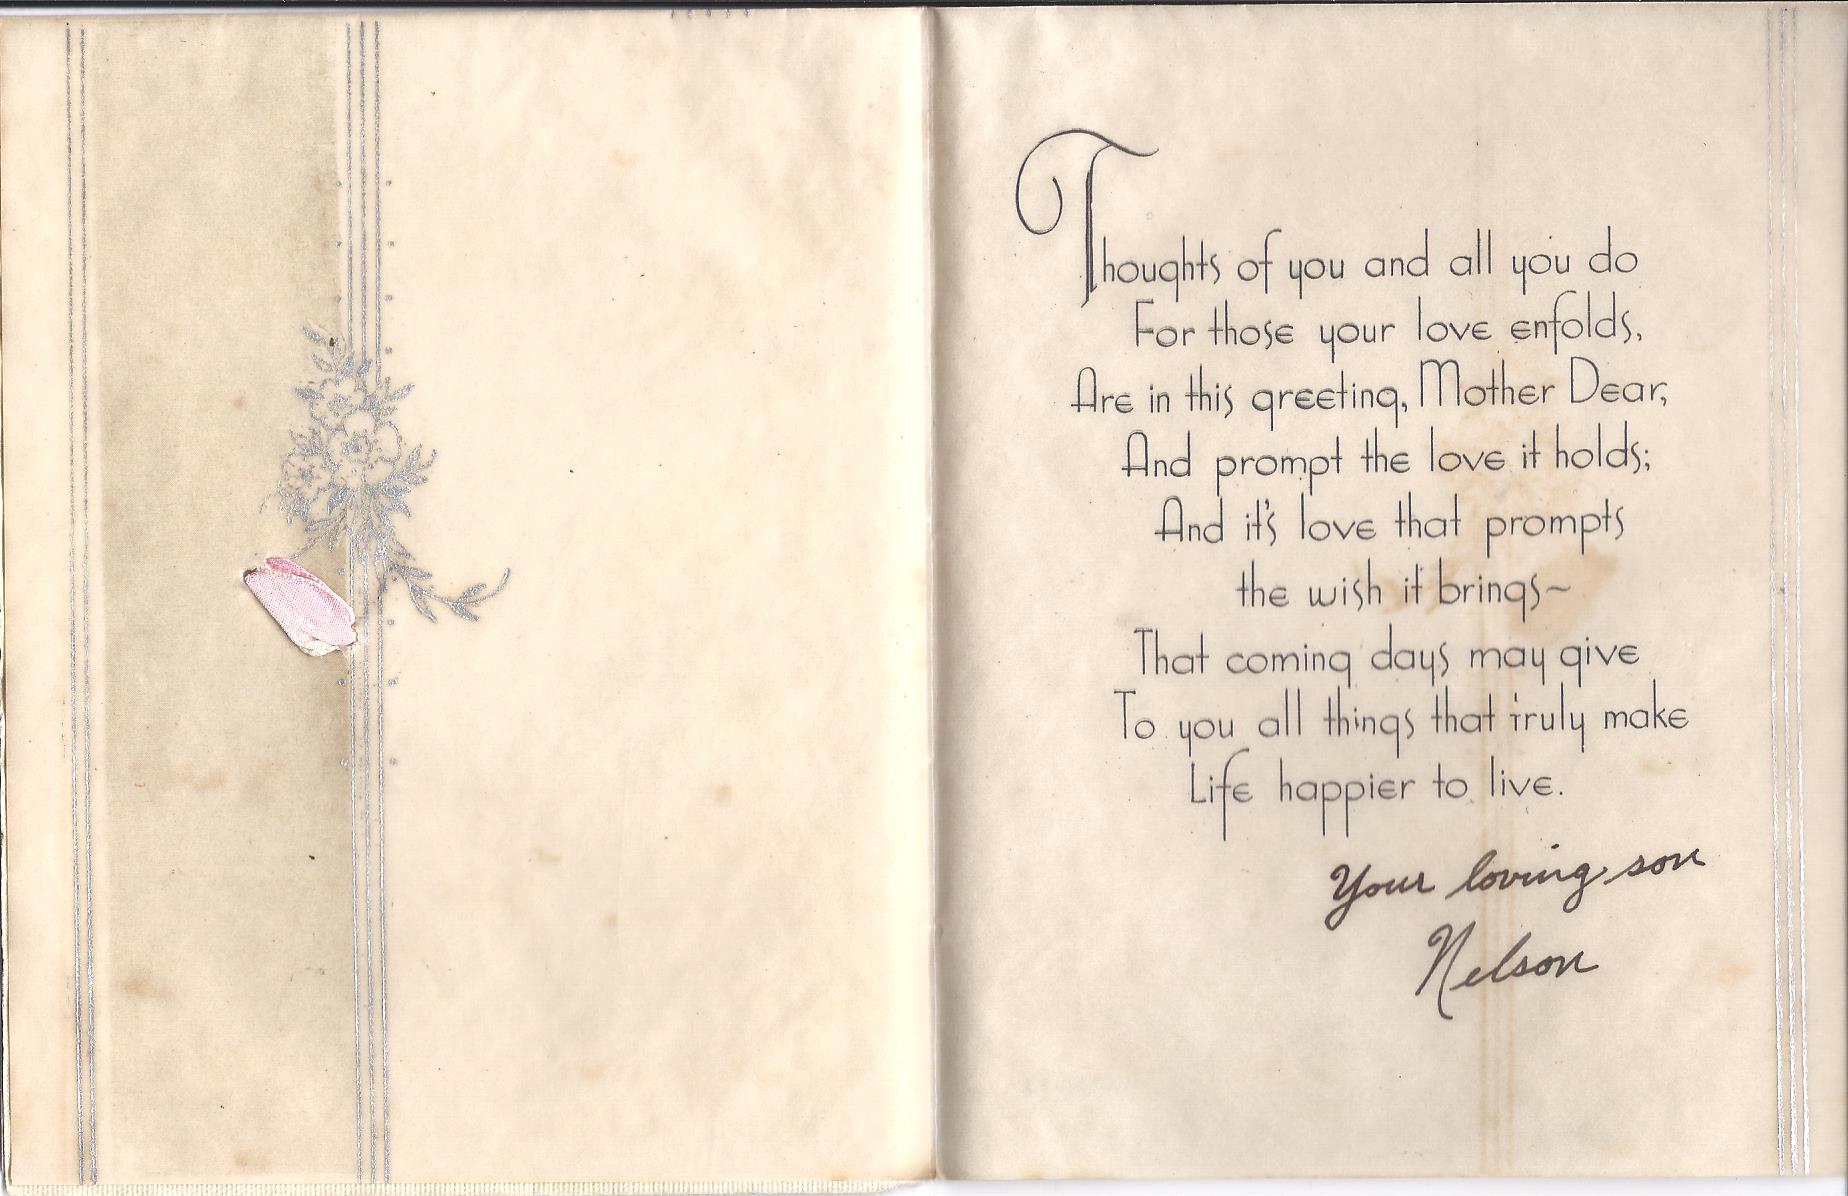 Thoughts of you and all you do
For those your love enfolds,
Are in this greeting, Mother Dear,
And prompt the love it holds;
And it's love that prompts
the wish it brings~
That coming days may give
To you all things that truly make
Life happier to live.
Your loving son
Nelson